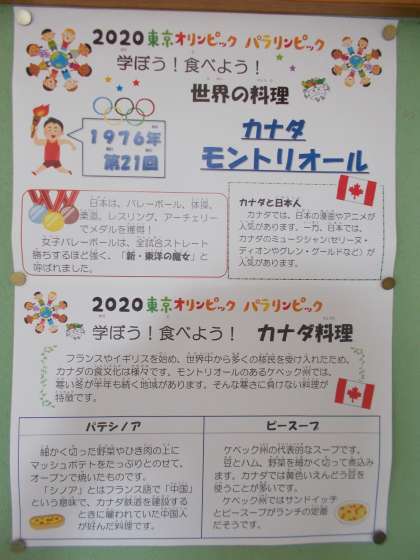 2020東京オリンピック パラリンピック
学ぼう！食べよう！
世界の料理
1976年
第21回
カナダ
モントリオール
日本は、バレーボール、体操、
柔道、レスリング、アーチェリー
でメダルを獲得！
女子バレーボールは、全試合ストレート
勝ちするほど強く、「新・東洋の魔女」と
呼ばれました。
カナダと日本人
カナダでは、日本の漫画やアニメが
人気があります。一方、日本では、
カナダのミュージシャン(セリーヌ・
ディオンやグレン・グールドなど）が
人気があります。
2020東京オリンピック パラリンピック
学ぼう！食べよう！ カナダ料理
フランスやイギリスを始め、世界中から多くの移民を受け入れたため、
カナダの食文化は様々です。モントリオールのあるケベック州では、
寒い冬が半年も続く地域があります。そんな寒さに負けない料理が
特徴です。
パテシノア
細かく切った野菜やひき肉の上に
マッシュポテトをたっぷりとのせて、
オーブンで焼いたものです。
「シノア」とはフランス語で「中国」
という意味で、カナダ鉄道を建設する
ときに雇われていた中国人
が好んだ料理です。
ピースープ
ケベック州の代表的なスープです。
豆とハム、野菜を細かく切って煮込み
ます。カナダでは黄色いえんどう豆を
使うことが多いです。
ケベック州ではサンドイッチ
とピースープがランチの定番
だそうです。